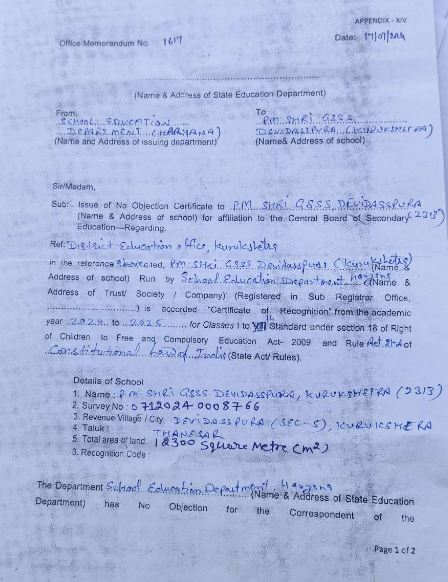 APPENDIX - XIV
Office Memorandum No. 1617 Date: 17/07/2024
(Name & Address of State Education Department)
From: To
SCHOOL EDUCATION PM SHRI GSSS
DEPARTMENT (HARYANA) DEVIDASPURA (KURUKSHETRA)
(Name and Address of issuing department) (Name& Address of school)
Sir/Madam,
Sub: Issue of No Objection Certificate to PM SHRI GSSS DEVIDASSPURA
(Name & Address of school) for affiliation to the Central Board of Secondary (2313)
Education—Regarding.
Ref: District Education office, Kurukshetra
In the reference above cited, PM SHRI GSSS Devidasspura (Kurukshetra) (Name &
Address of school) Run by School Education Department Haryana (Name &
Address of Trust/ Society / Company) (Registered in Sub Registrar Office,
..............................) is accorded "Certificate of Recognition" from the academic
year 2024 to 2025 for Classes I to XII th Standard under section 18 of Right
of Children to Free and Compulsory Education Act- 2009 and Rule Act 21-A of
Constitutional Law of India (State Act/ Rules).
Details of School
1. Name: PM SHRI GSSS DEVIDASSPURA, KURUKSHETRA (2313)
2. Survey No: 0712024 0008766
3. Revenue Village / City: DEVIDASSPURA (SEC-5), KURUKSHETRA
4. Taluk: THANESAR
5. Total area of land: 18300 Square Metre (m2)
3. Recognition Code
The Department School Education Department, Haryana (Name & Address of State Education
Department) has No Objection for the Correspondent of the
Page 1 of 2